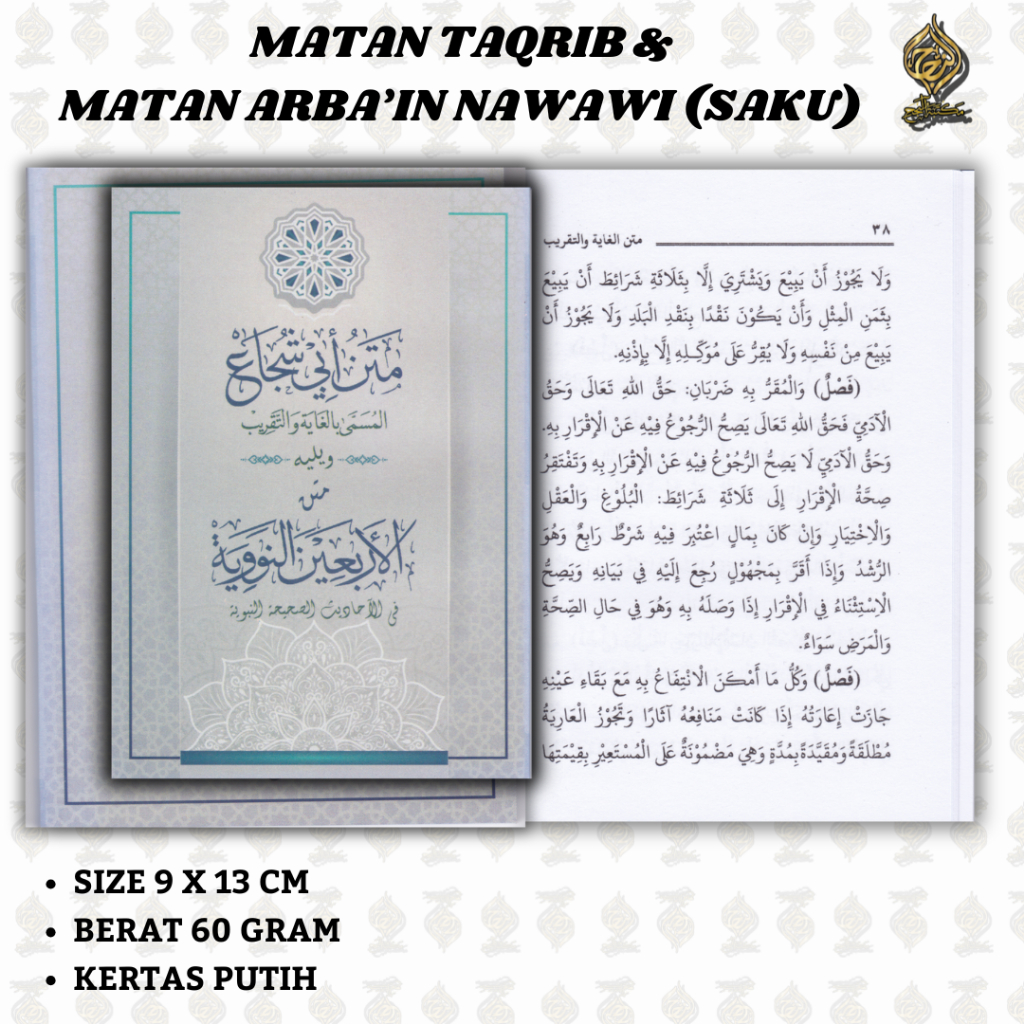 MATAN TAQRIB &
MATAN ARBA'IN NAWAWI (SAKU)
متن أبي شجاع
المسمى بالغاية والتقريب
ويليه
متن
الأربعين النووية
في الأحاديث الصحيحة النبوية
٣٨ متن الغاية والتقريب
وَلَا يَجُوْزُ أَنْ يَبِيْعَ وَيَشْتَرِيَ إِلَّا بِثَلَاثَةِ شَرَائِطَ أَنْ يَبِيْعَ
بِثَمَنِ الْمِثْلِ وَأَنْ يَكُوْنَ نَقْدًا بِنَقْدِ الْبَلَدِ وَلَا يَجُوْزُ أَنْ
يَبِيْعَ مِنْ نَفْسِهِ وَلَا يُقِرُّ عَلَى مُوَكِّلِهِ إِلَّا بِإِذْنِهِ.
(فَصْلٌ) وَالْمُقَرُّ بِهِ ضَرْبَانِ: حَقُّ اللهِ تَعَالَى وَحَقُّ
الْآدَمِيِّ فَحَقُّ اللهِ تَعَالَى يَصِحُّ الرُّجُوْعُ فِيْهِ عَنْ الْإِقْرَارِ بِهِ.
وَحَقُّ الْآدَمِيِّ لَا يَصِحُّ الرُّجُوْعُ فِيْهِ عَنْ الْإِقْرَارِ بِهِ وَتَفْتَقِرُ
صِحَّةُ الْإِقْرَارِ إِلَى ثَلَاثَةِ شَرَائِطَ: الْبُلُوْغِ وَالْعَقْلِ
وَالْاِخْتِيَارِ وَإِنْ كَانَ بِمَالٍ اعْتُبِرَ فِيْهِ شَرْطٌ رَابِعٌ وَهُوَ
الرُّشْدُ وَإِذَا أَقَرَّ بِمَجْهُوْلٍ رُجِعَ إِلَيْهِ فِي بَيَانِهِ وَيَصِحُّ
الْاِسْتِثْنَاءُ فِي الْإِقْرَارِ إِذَا وَصَلَهُ بِهِ وَهُوَ فِي حَالِ الصِّحَّةِ
وَالْمَرَضِ سَوَاءٌ.
(فَصْلٌ) وَكُلُّ مَا أَمْكَنَ الْاِنْتِفَاعُ بِهِ مَعَ بَقَاءِ عَيْنِهِ
جَازَتْ إِعَارَتُهُ إِذَا كَانَتْ مَنَافِعُهُ آثَارًا وَتَجُوْزُ الْعَارِيَةُ
مُطْلَقَةً وَمُقَيَّدَةً بِمُدَّةٍ وَهِيَ مَضْمُوْنَةٌ عَلَى الْمُسْتَعِيْرِ بِقِيْمَتِهَا
• SIZE 9 X 13 CM
• BERAT 60 GRAM
• KERTAS PUTIH